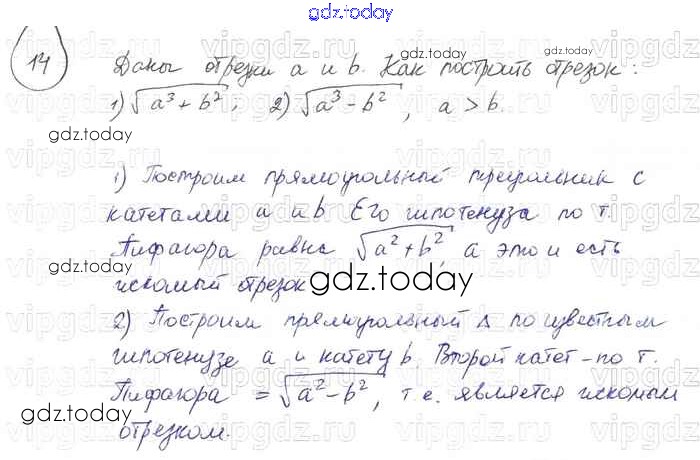 gdz.today
14
Даны отрезки a и b. Как построить отрезок:
1) √a³ + b²; 2) √a³ - b², a > b.
1) Построим прямоугольный треугольник с
катетами a и b. Его гипотенуза по т.
Пифагора равна √a² + b², а это и есть
искомый отрезок
2) Построим прямоугольный Δ по известным
гипотенузе a и катету b. Второй катет - по т.
Пифагора = √a² - b², т.е. является искомым
отрезком.